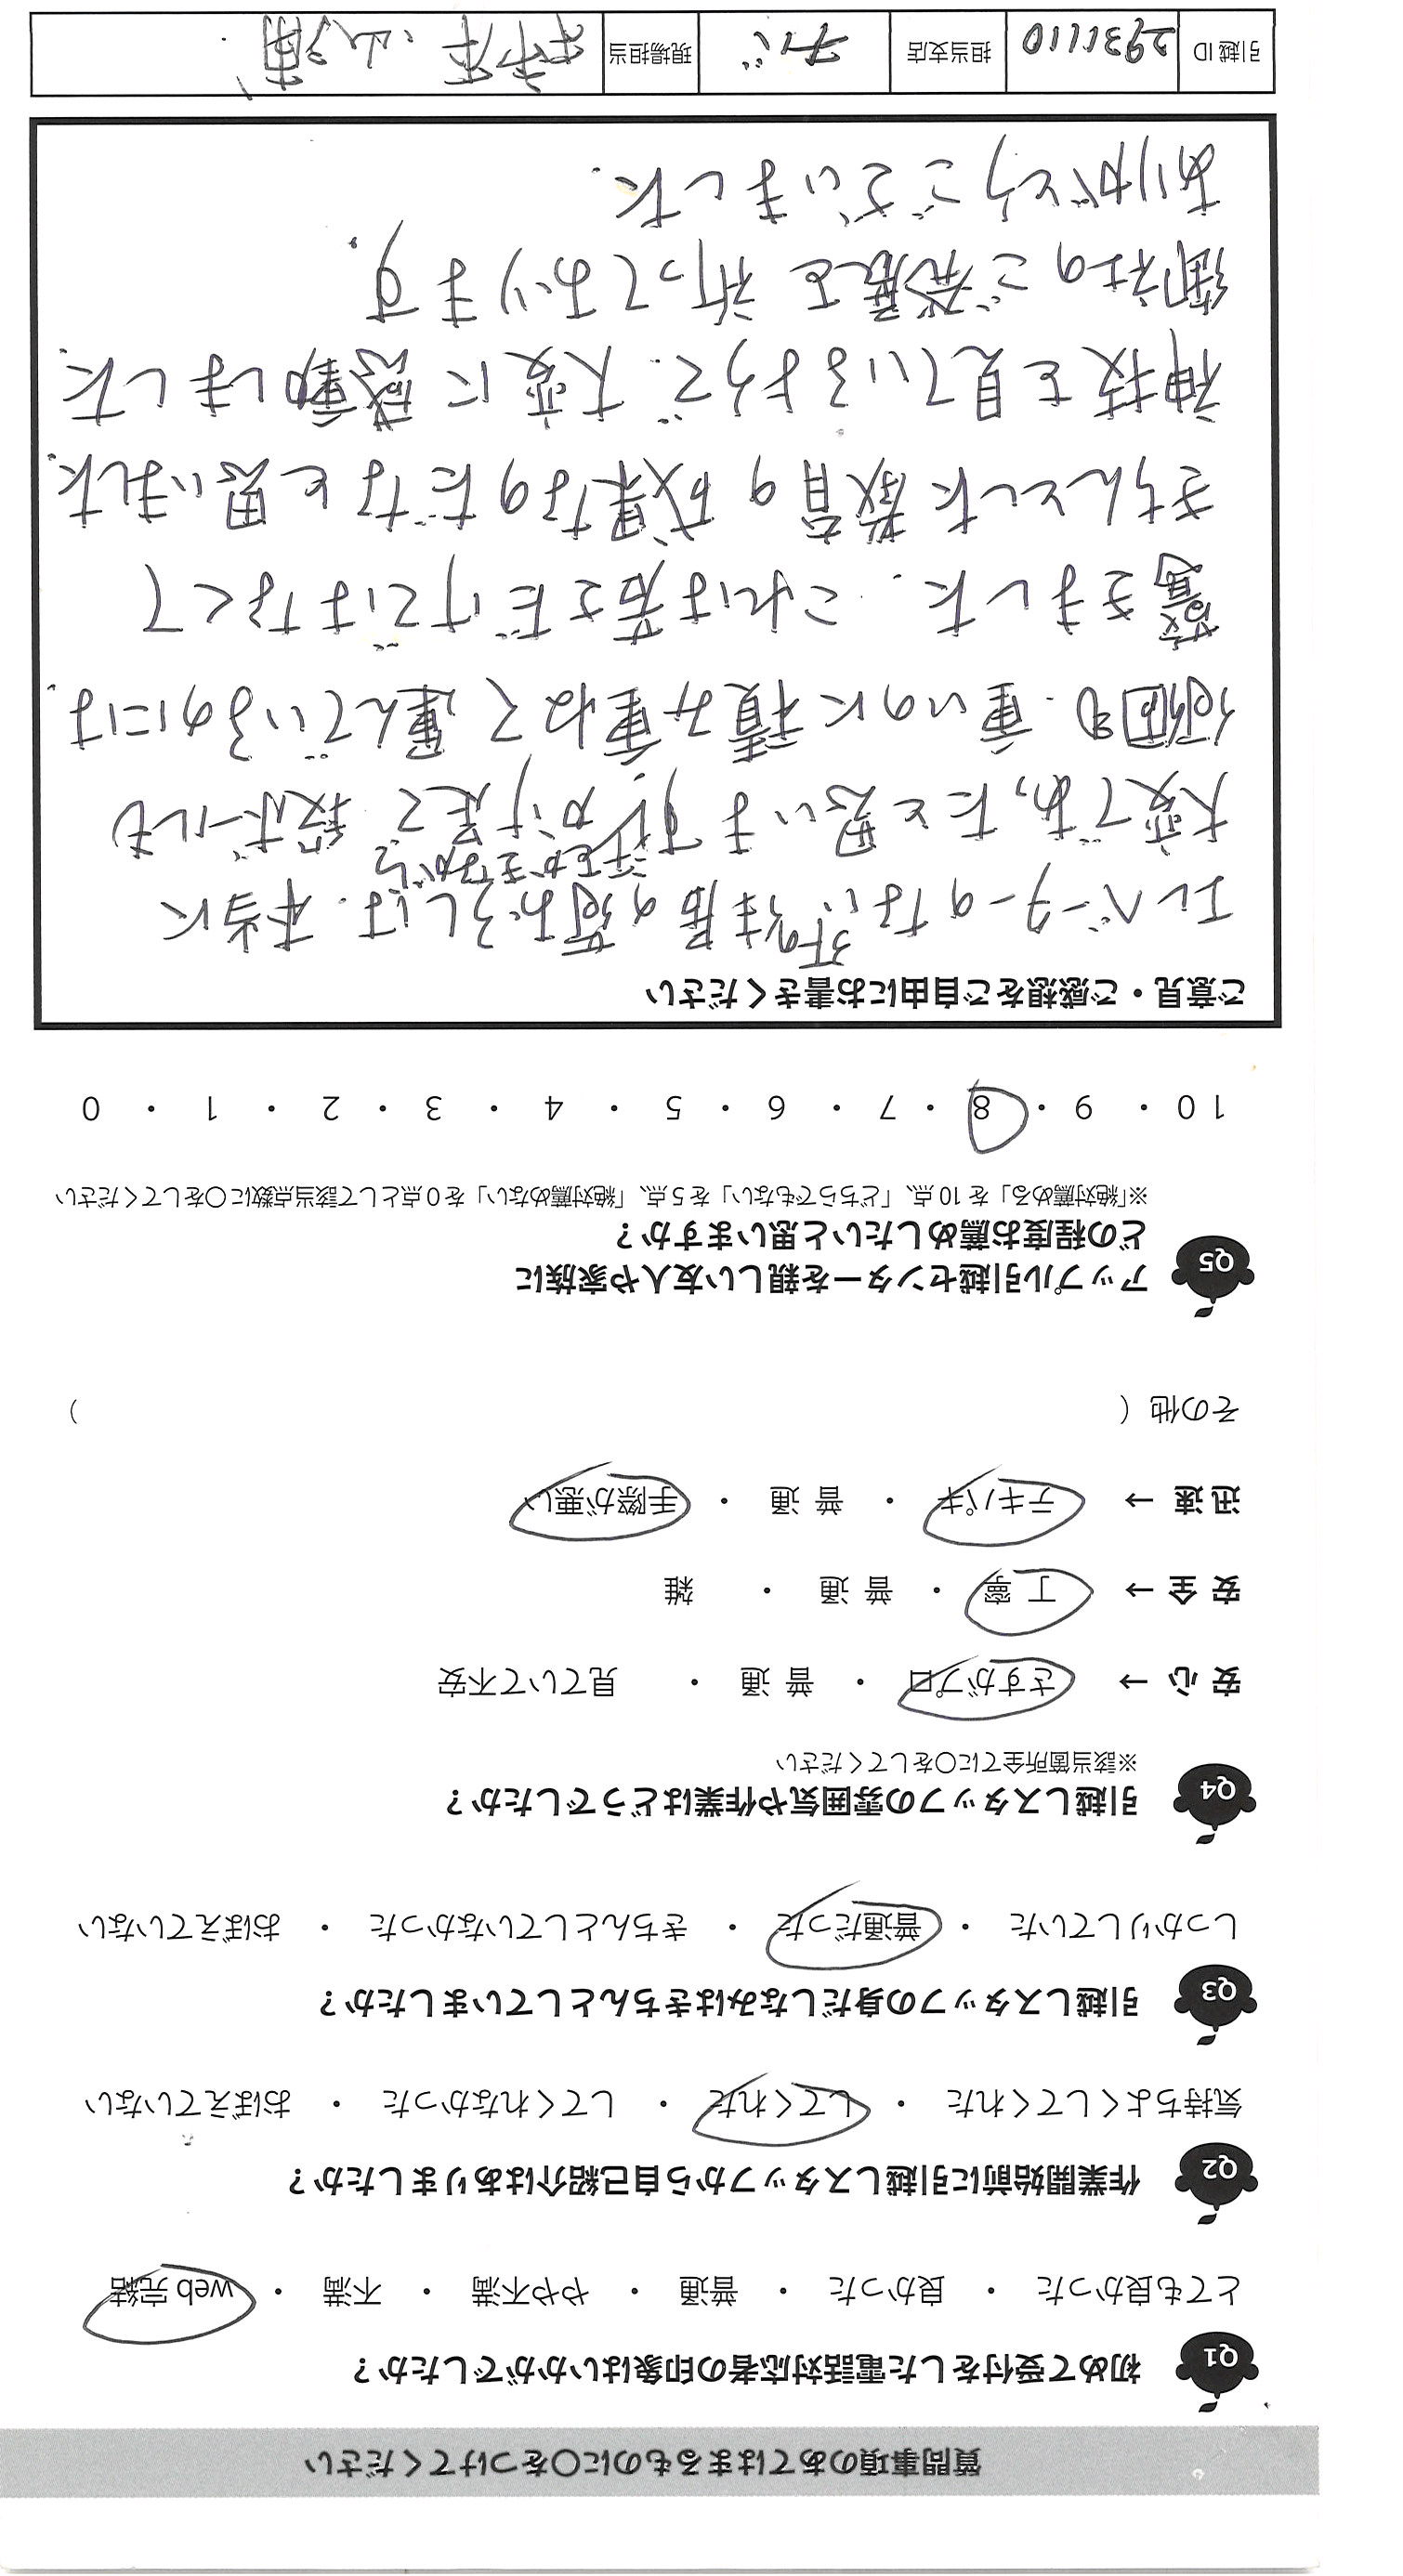 質問事項のあてはまるものに○をつけてください
Q1 初めて受付をした電話対応者の印象はいかがでしたか？
とても良かった ・ 良かった ・ 普通 ・ やや不満 ・ 不満 ・ web 完結
Q2 作業開始前に引越しスタッフから自己紹介はありましたか？
気持ちよくしてくれた ・ してくれた ・ してくれなかった ・ おぼえていない
Q3 引越しスタッフの身だしなみはきちんとしていましたか？
しっかりしていた ・ 普通だった ・ きちんとしていなかった ・ おぼえていない
Q4 引越しスタッフの雰囲気や作業はどうでしたか？
※該当箇所全てに○をしてください
安 心 → さすがプロ ・ 普 通 ・ 見ていて不安
安 全 → 丁 寧 ・ 普 通 ・ 雑
迅 速 → テキパキ ・ 普 通 ・ 手際が悪い
その他（ ）
Q5 アップル引越センターを親しい友人や家族に
どの程度お薦めしたいと思いますか？
※「絶対薦める」を 10 点、「どちらでもない」を 5 点、「絶対薦めない」を 0 点として該当点数に○をしてください
10 ・ 9 ・ 8 ・ 7 ・ 6 ・ 5 ・ 4 ・ 3 ・ 2 ・ 1 ・ 0
ご意見・ご感想をご自由にお書きください
エレベーターのない 住居の荷おろしは、本当に
汗をかきながら
大変であったと思います。かけ足で 段ボールも
何個も 重いのに積み重ねて運んでいるのには、
驚きました. これは若さだけではなくて
きちんとした教育の成果なのだなと思いました.
神技を見ているようで、大変に感動しました.
御社のご発展を祈っております.
ありがとうございました.
引越 ID 2931110 担当支店 チバ 現場担当 山浦